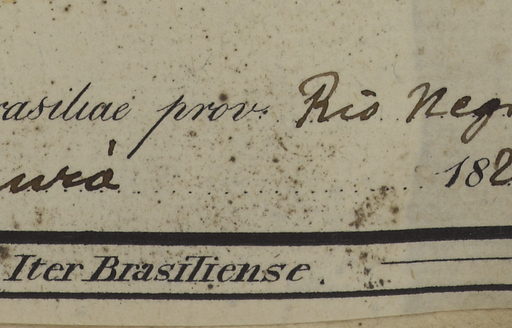 rasiliae prov. Rio Negr
urá 182
Iter Brasiliense.